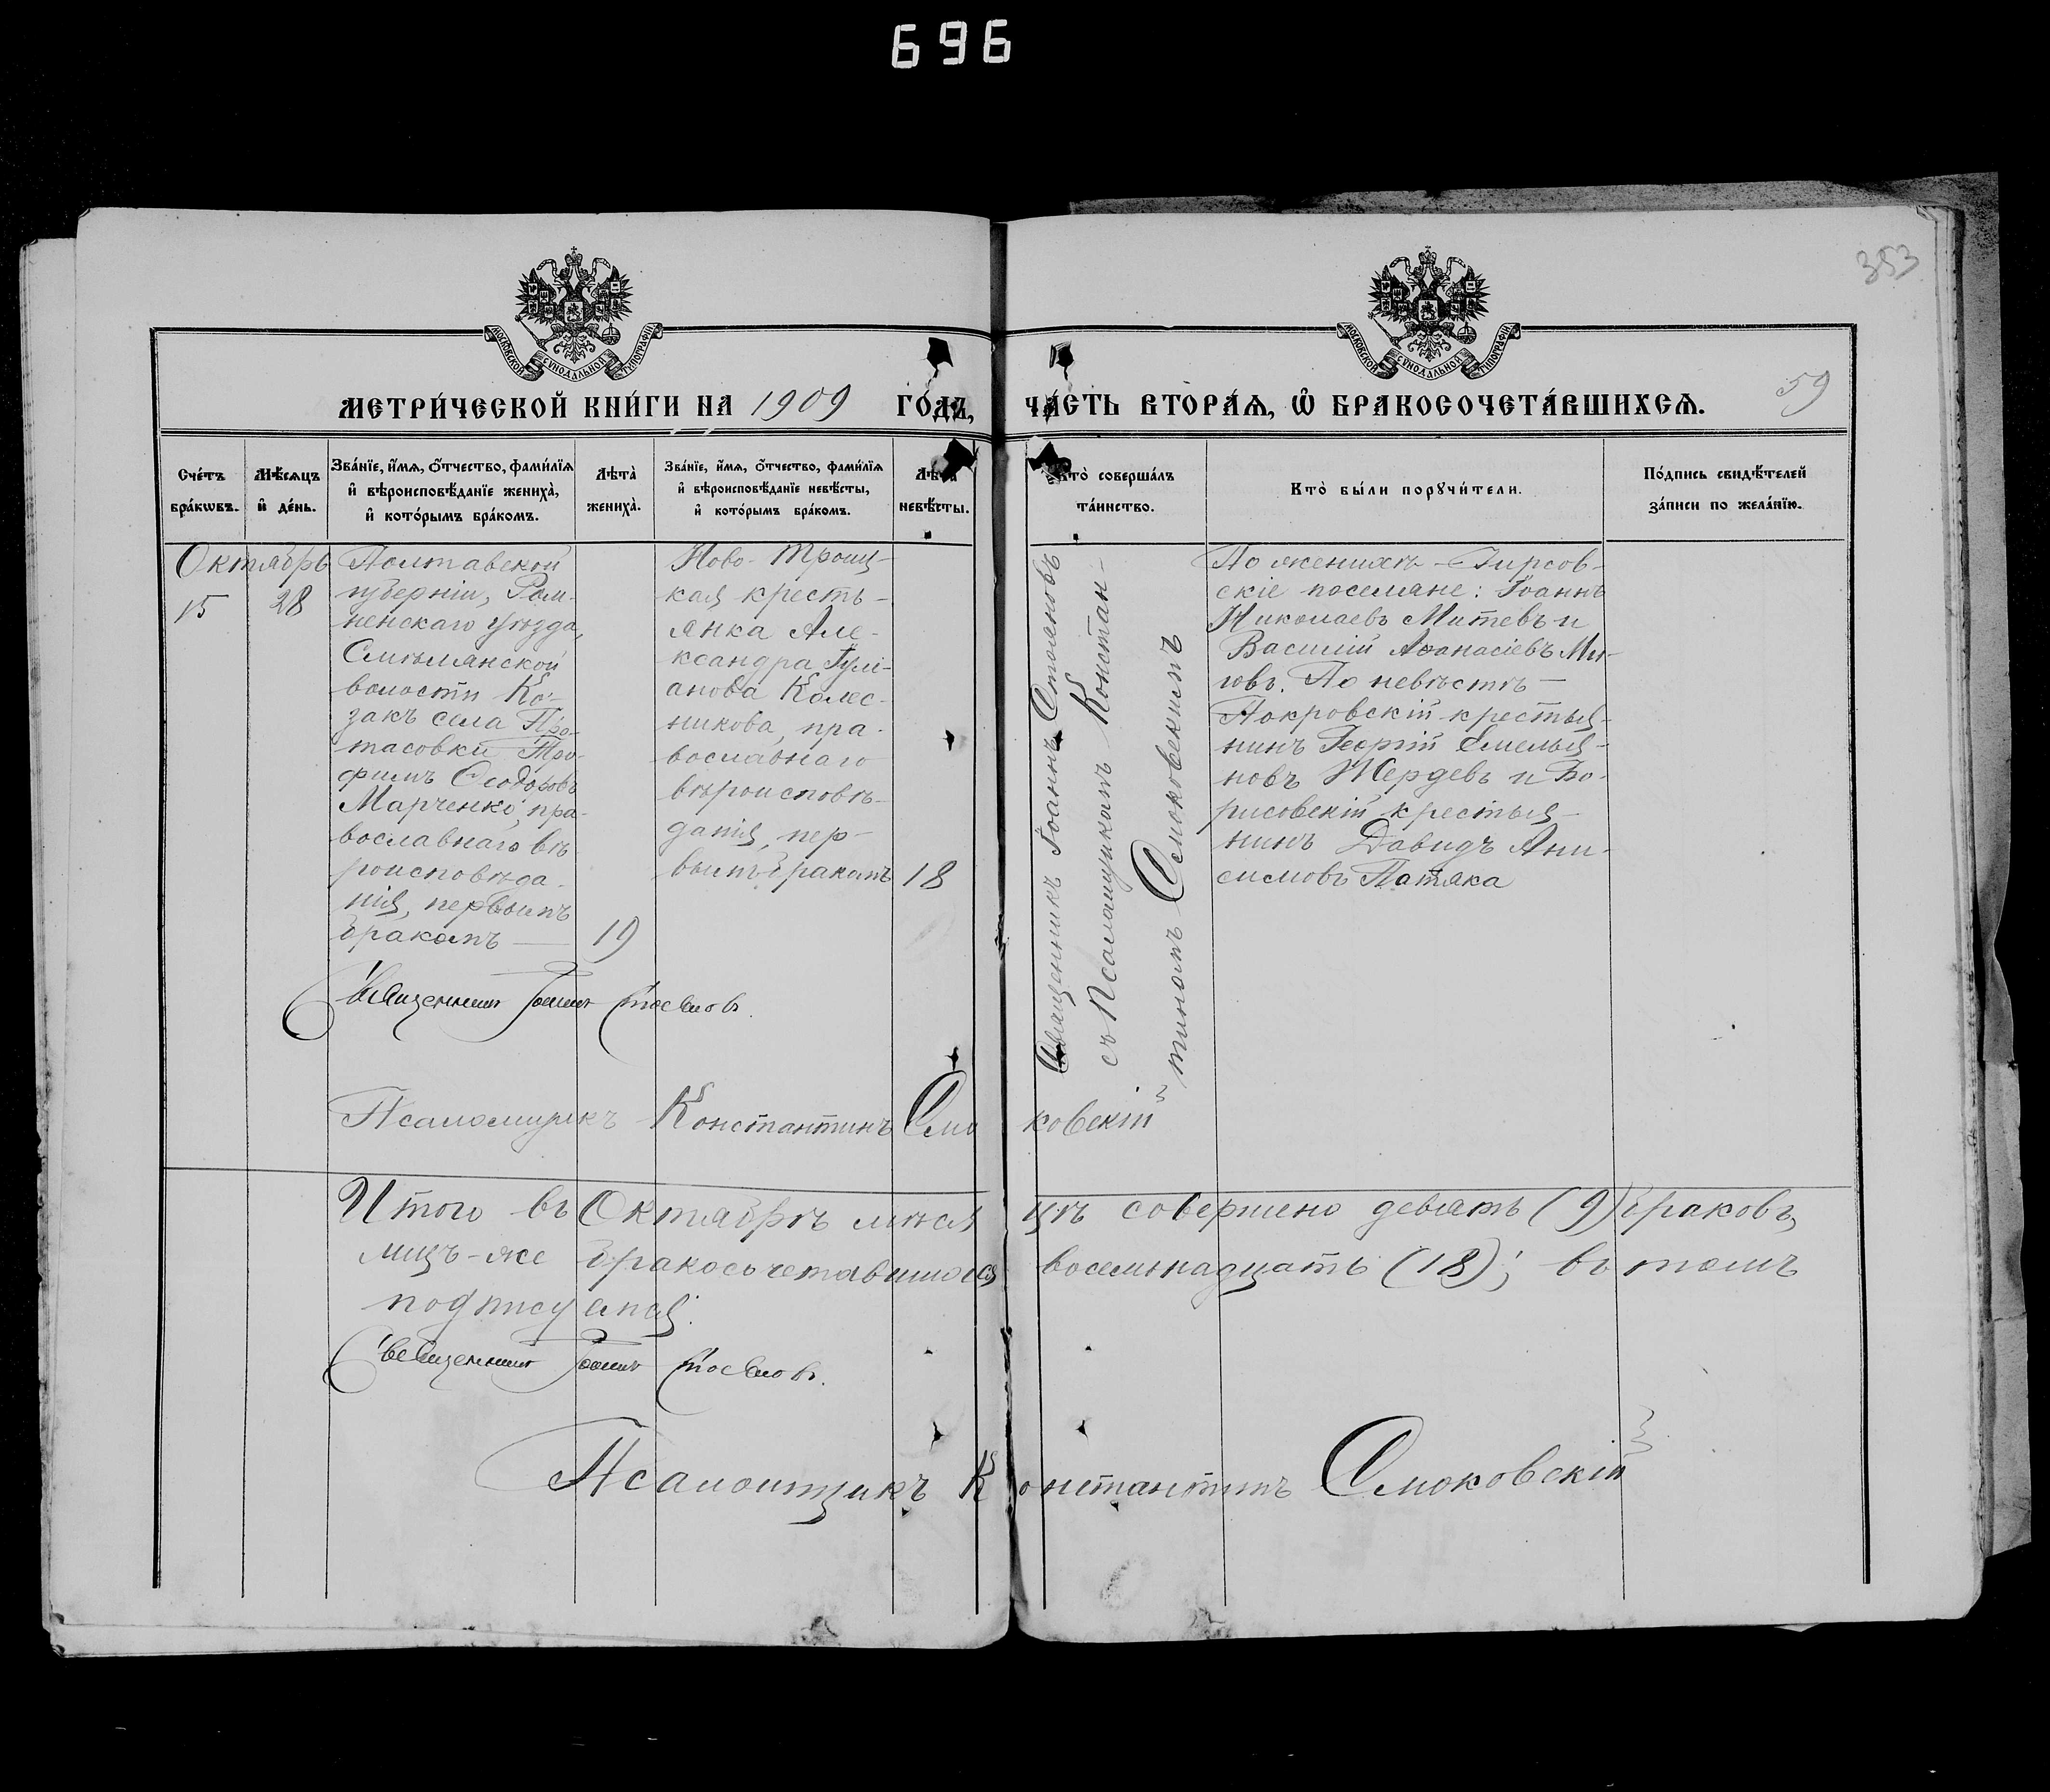 696
353
МОСКОВСКОЙ СѴНОДАЛЬНОЙ ТИПОГРАФІИ
МОСКОВСКОЙ СѴНОДАЛЬНОЙ ТИПОГРАФІИ
МЕТРИ́ЧЕСКОЙ КНИ́ГИ НА 1909 ГО́ДЪ, ЧА́СТЬ ВТОРА́Я, Ѡ҆ БРАКОСОЧЕТА́ВШИХСЯ.
59
Сче́тъ бра́кѡвъ.
Мѣ́сяцъ и҆ де́нь.
Зва́нїе, и҆́мѧ, ѻ҆́тчество, фами́лїѧ
и҆ вѣроисповѣ́данїе жениха̀,
и҆ кото́рымъ бра́комъ.
Лѣта̀ жениха̀.
Зва́нїе, и҆́мѧ, ѻ҆́тчество, фами́лїѧ
и҆ вѣроисповѣ́данїе невѣ́сты,
и҆ кото́рымъ бра́комъ.
Лѣта̀ невѣ́сты.
Кто̀ соверша́лъ
та́инство.
Кто̀ бы́ли порꙋчи́тели.
По́дпись свидѣ́телей
за́писи по жела́нїю.
Октябрь
15
28
Полтавской
губерніи, Ром-
ненскаго уѣзда,
Смѣлянской
волости Ко-
закъ села Про-
тасовки Тро-
фимъ Ѳеодоровъ
Марченко, пра-
вославнаго вѣ
роисповѣда-
нія, первымъ
бракомъ —
19
Ново-Троиц-
кая кресть-
янка Але-
ксандра Іулі-
анова Колес-
никова, пра-
вославнаго
вѣроисповѣ-
данія, пер-
вымъ бракомъ
18
Священникъ Іоаннъ Стояновъ
съ Псаломщикомъ Констан-
тиномъ Смоковскимъ
По женихѣ – Гирсов-
скіе поселяне: Іоаннъ
Николаевъ Митевъ и
Василій Аѳанасіевъ Ми-
По невѣстѣ —
Покровскій крестья-
нинъ Георгій Емелья-
новъ Жердевъ и Бо-
рисовскій крестья-
нинъ Давидъ Ани-
симовъ Потяка
Священникъ Іоаннъ Стояновъ.
Псаломщикъ Константинъ Смоковскій
Итого въ Октябрѣ мѣсяцѣ совершено девять (9) браковъ,
лицъ-же бракосочетавшихся восемьнадцать (18); въ томъ
подписуемся:
Священникъ Іоаннъ Стояновъ.
Псаломщикъ Константинъ Смоковскій